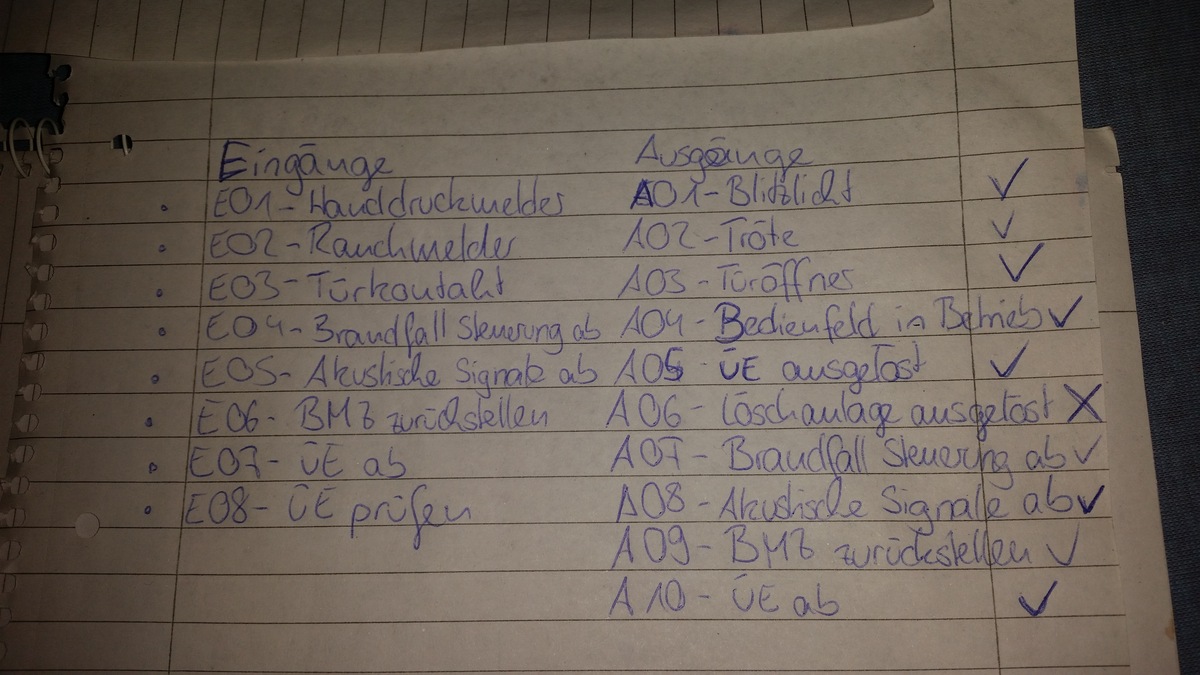 Eingänge Ausgänge
E01-Handdruckmelder A01-Blitzlicht ✓
E02-Rauchmelder A02-Tröte ✓
E03-Türkontakt A03-Türöffner ✓
E04-Brandfall Steuerung ab A04-Bedienfeld in Betrieb ✓
E05-Akustische Signale ab A05 ÜE ausgelöst ✓
E06-BMZ zurückstellen A06-Löschanlage ausgelöst X
E07-ÜE ab A07-Brandfall Steuerung ab ✓
E08-ÜE prüfen A08-Akustische Signale ab ✓
A09-BMZ zurückstellen ✓
A10-ÜE ab ✓